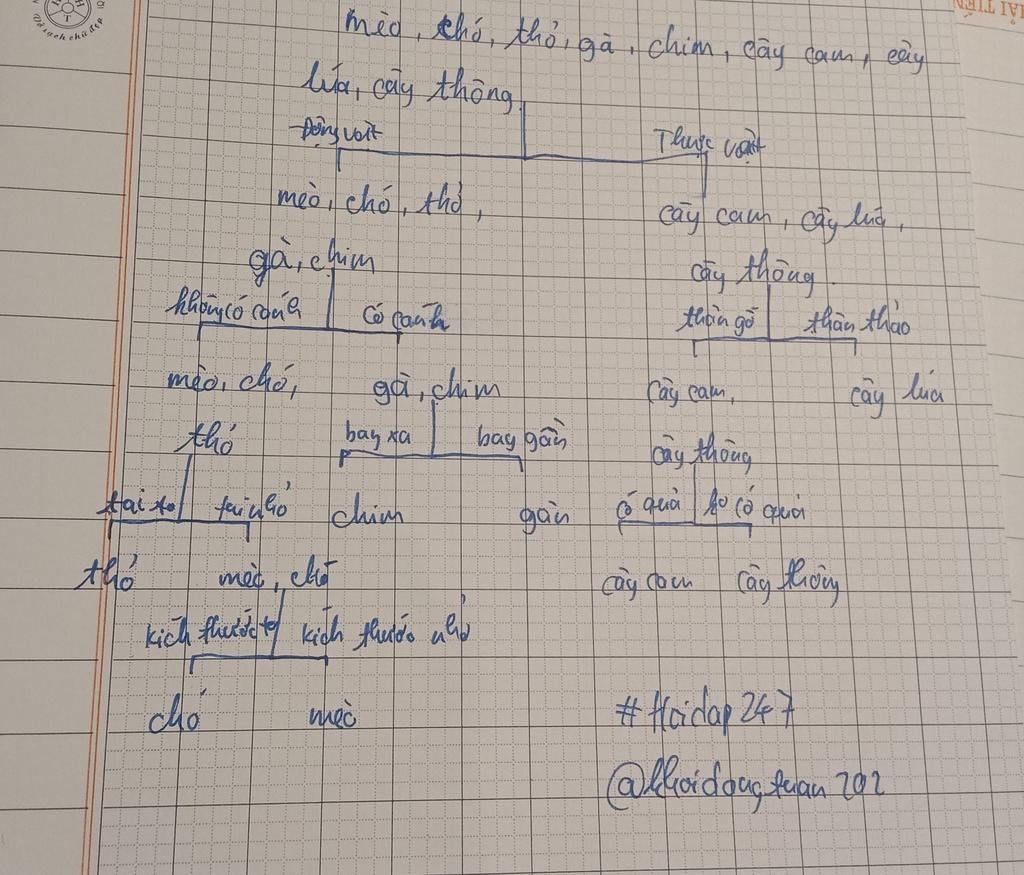 mèo, chó, thỏ, gà, chim, cây cam, cây
lúa, cây thông
Động vật Thực vật
mèo, chó, thỏ, cây cam, cây lúa,
gà, chim cây thông
không có cánh có cánh thân gỗ thân thảo
mèo, chó, gà, chim cây cam, cây lúa
thỏ bay xa bay gần cây thông
tai to tai nhỏ chim gà có quả ko có quả
thỏ mèo, chó cây cam cây thông
kích thước to kích thước nhỏ
chó mèo #Hoidap247
@khoidangtuan202